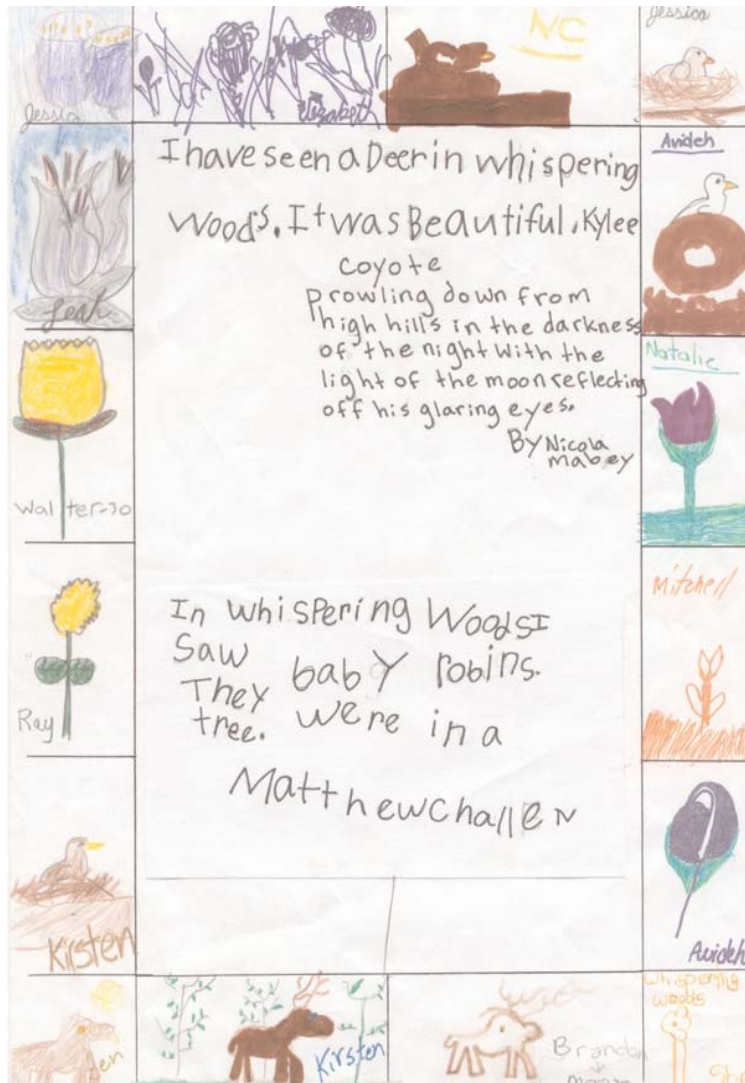 Jessica
Elizabeth
NC
Jessica
Avideh
I have seen a Deer in whispering
Woods. It was Beautiful. Kylee
coyote
prowling down from
high hills in the darkness
of the night With the
light of the moon reflecting
off his glaring eyes.
By Nicola
mabey
Leah
Natalie
Walter-Jo
Mitchell
In whispering Woods I
Saw baby robins.
They were in a
tree.
Matthew Challen
Ray
Kirsten
Avideh
en
Kirsten
Brandon
whispering
woods